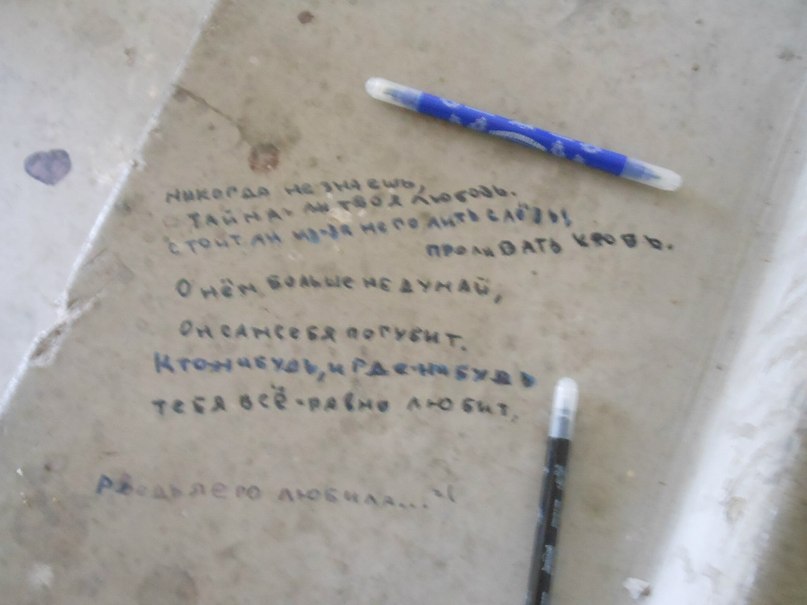 никогда не знаешь,
тайна-ли твоя любовь.
стоит ли из-за него лить слёзы,
проливать кровь.
О нём больше не думай,
Он сам себя погубит.
Кто-нибудь, и где-нибудь
тебя всё-равно любит.
я его любила...